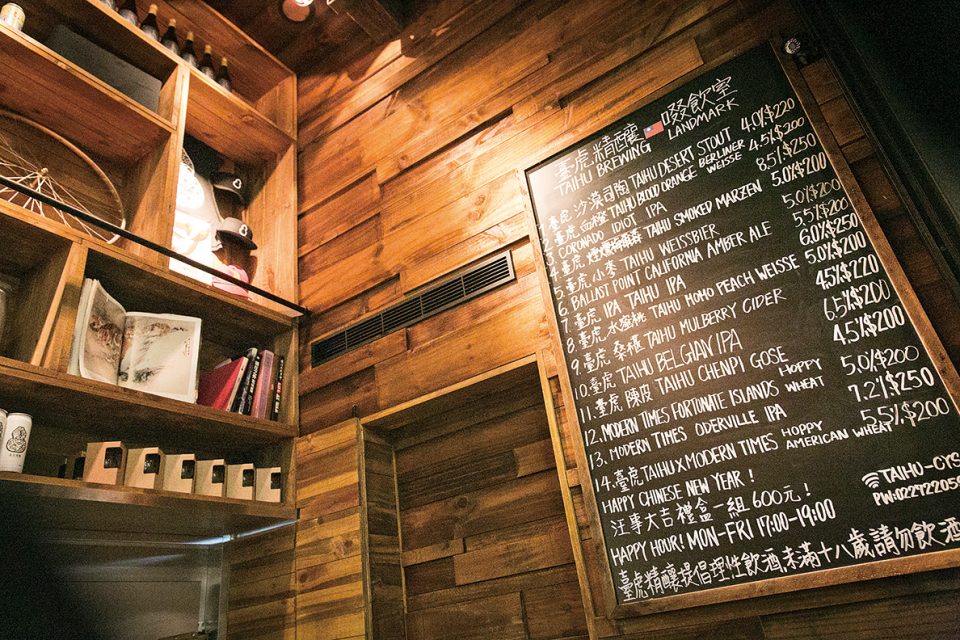 臺虎精釀 啜飲室
TAIHU BREWING LANDMARK
1. 臺虎 沙漠司陶 TAIHU DESERT STOUT 4.0%/$220
2. 臺虎 血橙 TAIHU BLOOD ORANGE BERLINER WEISSE 4.5%/$200
3. CORONADO IDIOT IPA 8.5%/$250
4. 臺虎 TAIHU SMOKED MARZEN 5.0%/$200
5. 臺虎 小麥 TAIHU WEISSBIER 5.0%/$200
6. BALLAST POINT CALIFORNIA AMBER ALE 5.5%/$200
7. 臺虎 IPA TAIHU IPA 6.0%/$250
8. 臺虎 水蜜桃 TAIHU MOMO PEACH WEISSE 5.0%/$200
9. 臺虎 桑椹 TAIHU MULBERRY CIDER 4.5%/$220
10. 臺虎 TAIHU BELGIAN IPA 6.5%/$200
11. 臺虎 陳皮 TAIHU CHENPI GOSE 4.5%/$200
12. MODERN TIMES FORTUNATE ISLANDS HOPPY WHEAT 5.0%/$200
13. MODERN TIMES ODERVILLE IPA 7.2%/$250
14. 臺虎 TAIHU X MODERN TIMES HOPPY AMERICAN WHEAT 5.5%/$200
HAPPY CHINESE NEW YEAR!
汪事大吉禮盒一組600元!
HAPPY HOUR! MON-FRI 17:00-19:00
TAIHU-GYS
PW:022722059
臺虎精釀提倡理性飲酒,未滿十八歲請勿飲酒